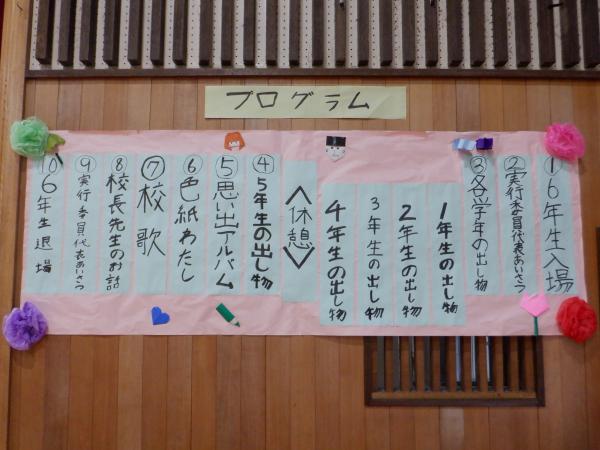 プログラム
①6年生入場
②実行委員代表あいさつ
③各学年の出し物
1年生の出し物
2年生の出し物
3年生の出し物
4年生の出し物
<休憩>
④5年生の出し物
⑤思い出アルバム
⑥色紙わたし
⑦校歌
⑧校長先生のお話
⑨実行委員代表あいさつ
⑩6年生退場